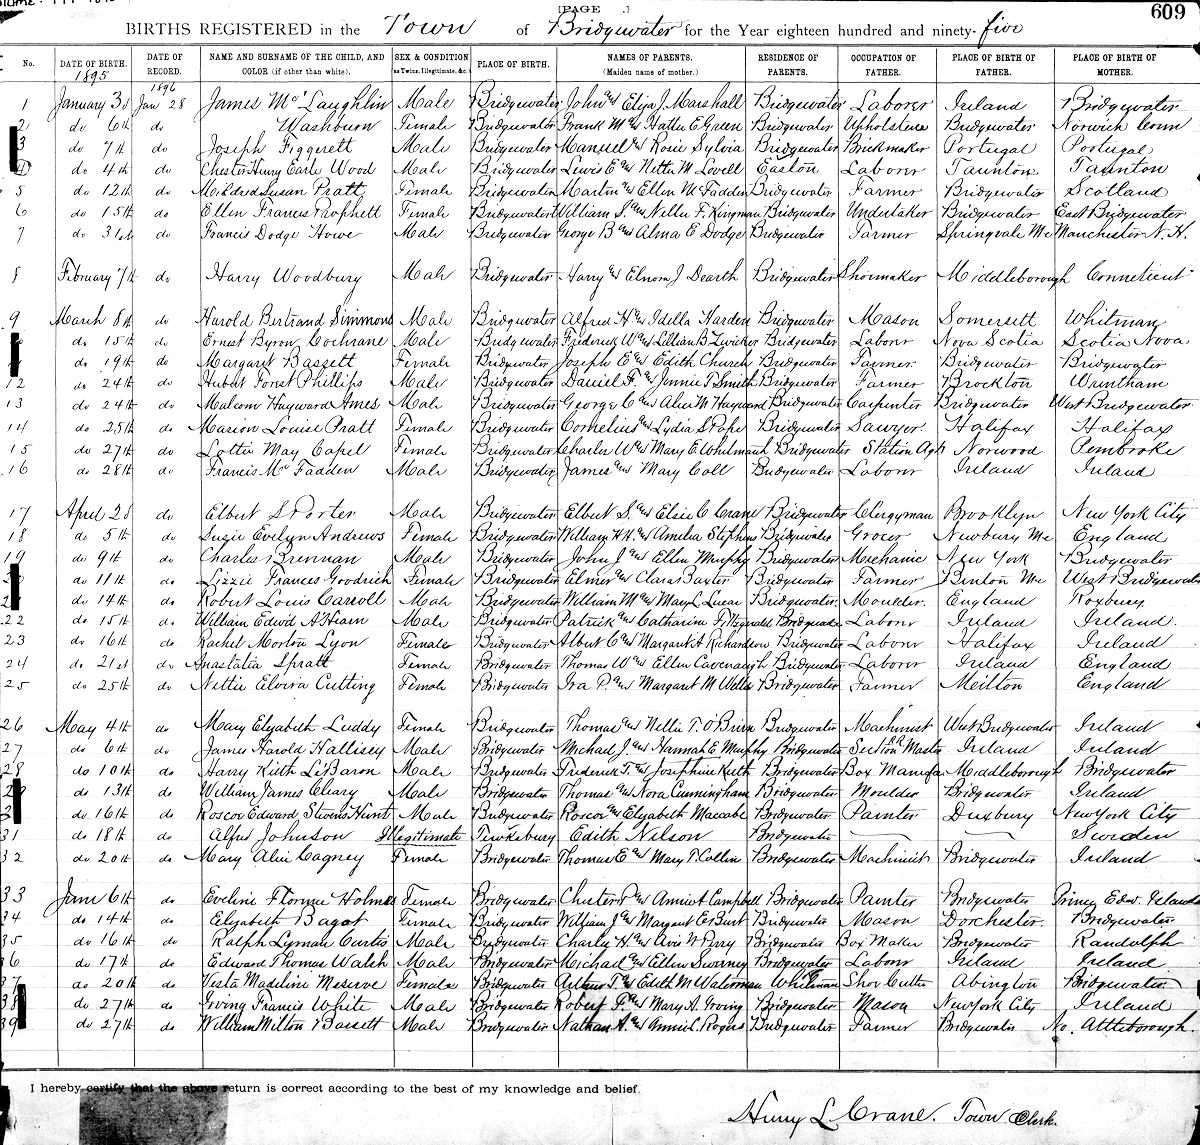 [PAGE .]
609
BIRTHS REGISTERED in the Town of Bridgewater for the Year eighteen hundred and ninety-five
No. DATE OF BIRTH. DATE OF RECORD. NAME AND SURNAME OF THE CHILD, AND COLOR (if other than white). SEX & CONDITION as Twins, Illegitimate, &c. PLACE OF BIRTH. NAMES OF PARENTS. (Maiden name of mother.) RESIDENCE OF PARENTS. OCCUPATION OF FATHER. PLACE OF BIRTH OF FATHER. PLACE OF BIRTH OF MOTHER.
1895 1896
1 January 3d Jan 28 James McLaughlin Male Bridgewater John and Eliza J. Marshall Bridgewater Laborer Ireland Bridgewater
2 do 6th do Washburn Female Bridgewater Frank M and Hattie E Green Bridgewater Upholsterer Bridgewater Norwich Conn
3 do 7th do Joseph Figgerett Male Bridgewater Manuel and Rosie Sylvia Bridgewater Brickmaker Portugal Portugal
4 do 4th do Chester Henry Earle Wood Male Bridgewater Lewis E and Nettie M Lovell Easton Laborer Taunton Taunton
5 do 12th do Mildred Susan Pratt Female Bridgewater Martin and Ellen McFadden Bridgewater Farmer Bridgewater Scotland
6 do 15th do Ellen Francis Prophett Female Bridgewater William S. and Nellie F. Kingman Bridgewater Undertaker Bridgewater East Bridgewater
7 do 31st do Francis Dodge Howe Male Bridgewater George B and Alma E Dodge Bridgewater Farmer Springvale Me Manchester N.H.
8 February 7th do Harry Woodbury Male Bridgewater Harry and Elnora J Dearth Bridgewater Shoemaker Middleborough Conneticut
9 March 8th do Harold Bertrand Simmons Male Bridgewater Alfred H and Idella Harden Bridgewater Mason Somersett Whitman
do 15th do Ernest Byron Cochrane Male Bridgewater Frederick W and Lillian B Zwicker Bridgewater Laborer Nova Scotia Scotia Nova
do 19th do Margaret Bassett Female Bridgewater Joseph E and Edith Church Bridgewater Farmer Bridgewater Bridgewater
12 do 24th do Hubert Forest Phillips Male Bridgewater Daniel F. and Jennie T Smith Bridgewater Farmer Brockton Wrentham
13 do 24th do Malcom Hayward Ames Male Bridgewater George C and Alice M Hayward Bridgewater Carpenter Bridgewater West Bridgewater
14 do 25th do Marion Louise Pratt Female Bridgewater Cornelius and Lydia Stope Bridgewater Sawyer Halifax Halifax
15 do 27th do Lottie May Capel Female Bridgewater Charles W and Mary E Whitman Bridgewater Station Agt Norwood Pembroke
16 do 28th do Francis McFadden Male Bridgewater James and Mary Coll Bridgewater Laborer Ireland Ireland
17 April 2d do Elbert S Porter Male Bridgewater Elbert S. and Elsie C Crane Bridgewater Clergyman Brooklyn New York City
18 do 5th do Susie Evelyn Andrews Female Bridgewater William H H and Amelia Stephens Bridgewater Grocer Newbury Me England
19 do 9th do Charles Brennan Male Bridgewater John J and Ellen Murphy Bridgewater Mechanic New York Bridgewater
do 11th do Lizzie Frances Goodrich Female Bridgewater Elmer and Clara Baxter Bridgewater Farmer Benton Me West Bridgewater
do 14th do Robert Louis Carroll Male Bridgewater William M and Mary L Bridgewater Moulder England Roxbury
22 do 15th do William Edwd A'Hearn Male Bridgewater Patrick and Catharine Fitzgerald Bridgewater Laborer Ireland Ireland
23 do 16th do Rachel Morton Lyon Female Bridgewater Albert C and Margaret A Richardson Bridgewater Laborer Halifax Ireland
24 do 21st do Anastatia Spratt Female Bridgewater Thomas W and Ellen Cavenaugh Bridgewater Laborer Ireland England
25 do 25th do Nettie Elvira Cutting Female Bridgewater Ira P. and Margaret M Wells Bridgewater Farmer Milton England
26 May 4th do Mary Elizabeth Luddy Female Bridgewater Thomas and Nellie T. O'Brien Bridgewater Machinist West Bridgewater Ireland
27 do 6th do James Harold Hallisey Male Bridgewater Michael J. and Hannah E Murphy Bridgewater Section Master Ireland Ireland
28 do 10th do Harry Keith LeBaron Male Bridgewater Frederick T. and Josephine Keith Bridgewater Box Manufar Middleborough Bridgewater
do 13th do William James Cleary Male Bridgewater Thomas and Nora Cunningham Bridgewater Moulder Bridgewater Ireland
do 16th do Roscoe Edward Stevens Hunt Male Bridgewater Roscoe and Elizabeth Maccabe Bridgewater Painter Duxbury New York City
31 do 18th do Alfred Johnson Illegitimate Tewksbury Edith Nelson Bridgewater Sweden
32 do 20th do Mary Alice Cagney Female Bridgewater Thomas E and Mary T. Collin Bridgewater Machinist Bridgewater Ireland
33 June 6th do Eveline Florence Holmes Female Bridgewater Chester P and Annie A Campbell Bridgewater Painter Bridgewater Prince Edw. Island
34 do 14th do Elizabeth Bagot Female Bridgewater William J and Margaret E Burt Bridgewater Mason Dorchester Bridgewater
35 do 16th do Ralph Lyman Curtis Male Bridgewater Charles H. and Avis W Perry Bridgewater Box Maker Bridgewater Randolph
36 do 17th do Edward Thomas Walsh Male Bridgewater Michael and Ellen Sweeney Bridgewater Laborer Ireland Ireland
37 do 20th do Vesta Madeline Meserve Female Bridgewater Arthur T. and Edith M Waterman Whitman Shoe Cutter Abington Bridgewater
38 do 27th do Irving Francis White Male Bridgewater Robert F. and Mary A. Irving Bridgewater Mason New York City Ireland
39 do 27th do William Milton Bassett Male Bridgewater Nathan A. and Annie L. Rogers Bridgewater Farmer Bridgewater No. Attleborough
I hereby certify that the above return is correct according to the best of my knowledge and belief.
Henry L. Crane. Town Clerk.